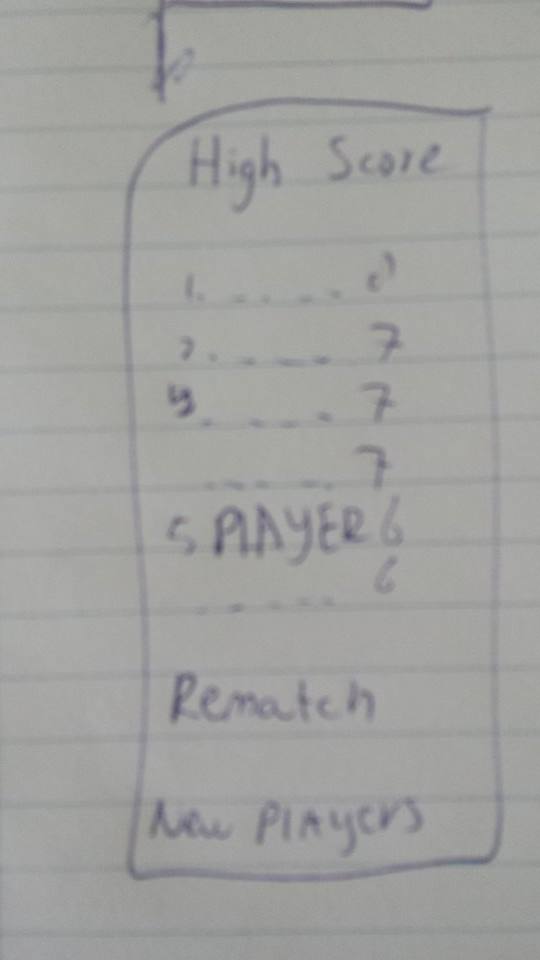 High Score
1. - - - - -
2. - - - - 7
- - - - 7
- - - - - 7
5 PLAYER 6
- - - - - 6
Rematch
New PlAyers